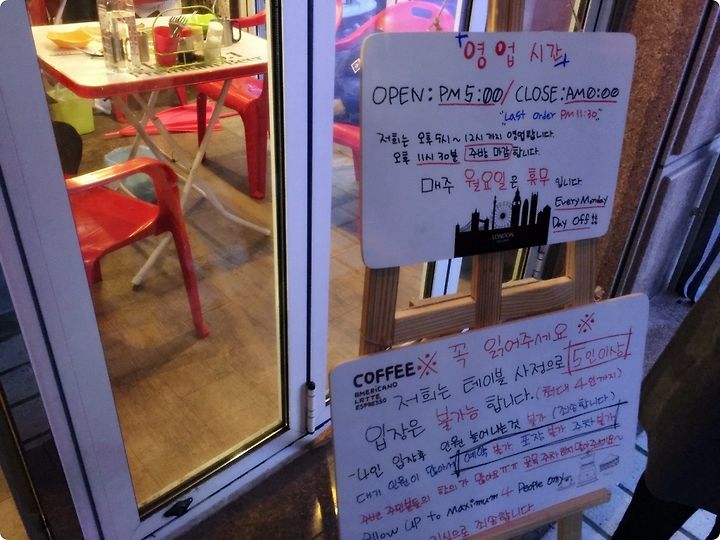 영업 시간
OPEN: PM 5:00 / CLOSE: AM 0:00
"Last order PM 11:30"
저희는 오후 5시~12시까지 영업합니다.
오후 11시30분 주방 마감합니다.
매주 월요일은 휴무 입니다
Every Monday
Day Off!!
LONDON
COFFEE ※ 꼭 읽어주세요 ※
AMERICANO
LATTE
ESPRESSO
저희는 테이블 사정으로 5인이상
입장은 불가능 합니다. (최대 4인까지)
입장후 인원 늘어나는것 불가 (죄송합니다)
대기 인원이 많아서 예약 불가 포장 불가 주차 불가
주변 주민분들의 항의가 많아요ㅠㅠ
Allow up to maximum 4 people only
죄송합니다.